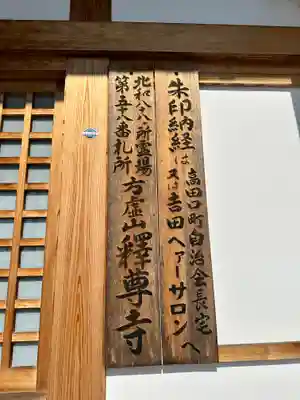 ・朱印納経は高田口町自治会長宅へ
又は吉田ヘアーサロン
・北和八十八ヶ所霊場
第五十八番札所
方虚山釋尊寺